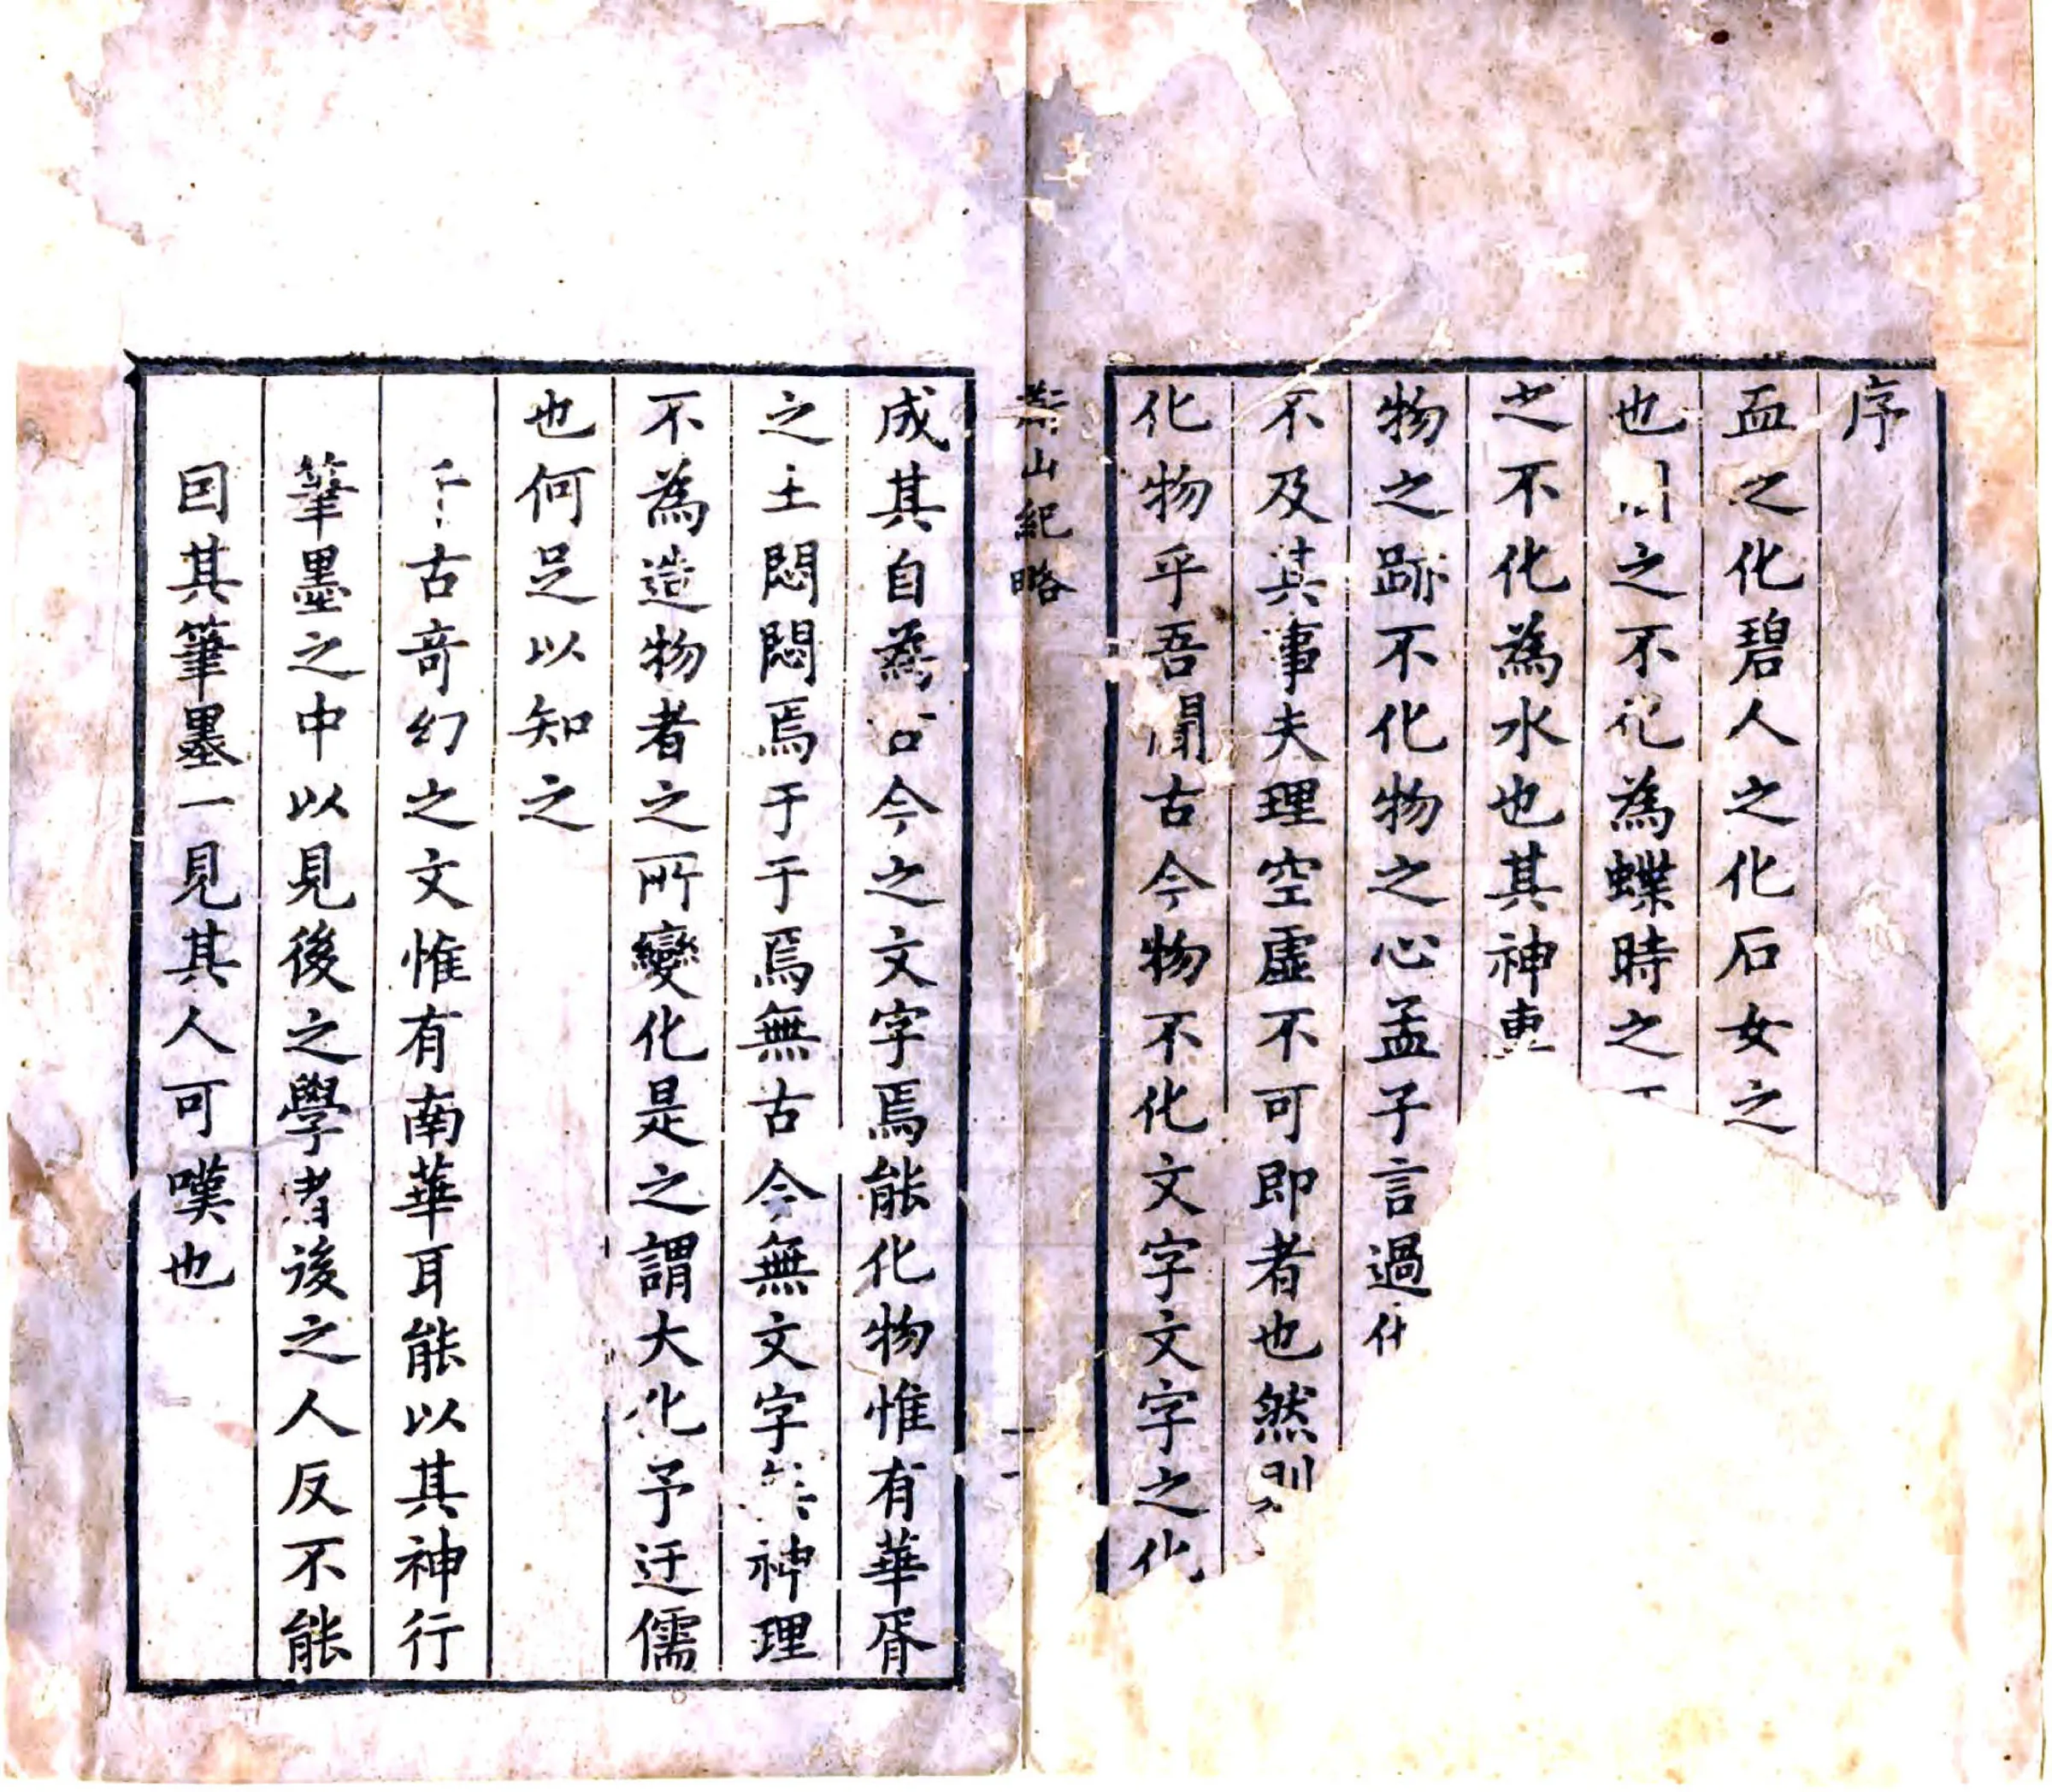 序
血之化碧人之化石女之
也之不化為蝶時之
之不化為水也其神
物之跡不化物之心孟子言過化
不及其事夫理空虛不可即者也然則
化物乎吾聞古今物不化文字文字之化
山紀略
成其自為古今之文字焉能化物惟有華胥
之土悶悶焉于于焉無古今無文字神理
不為造物者之所變化是之謂大化予迂儒
也何足以知之
千古奇幻之文惟有南華耳能以其神行
筆墨之中以見後之學者後之人反不能
因其筆墨一見其人可嘆也